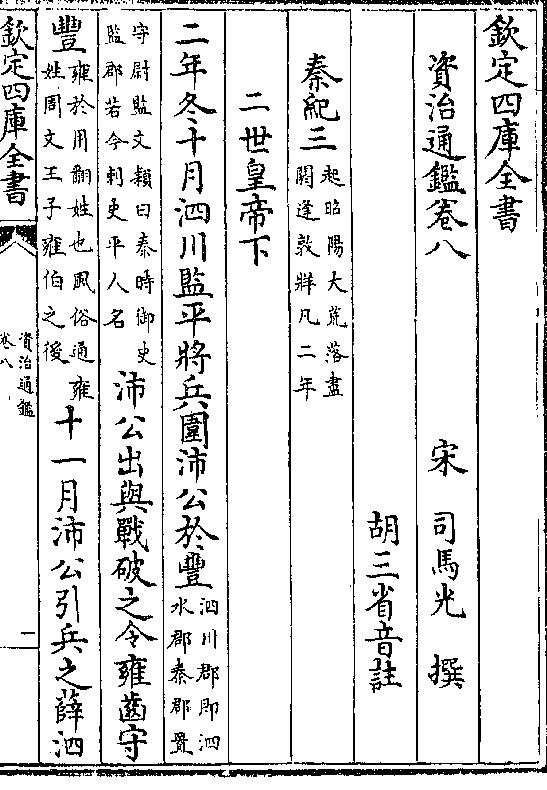 欽定四庫全書
資治通鑑卷八
宋 司馬光 撰
胡三省音註
秦紀三
起昭陽大荒落盡
閼逢敦牂凡二年
二世皇帝下
二年冬十月泗川監平將兵圍沛公於豐
泗川郡即泗
水郡秦郡置
守尉監文穎曰秦時御史
監郡若今刺史平人名
沛公出與戰破之令雍齒守
豐
雍於用翻姓也風俗通雍
姓周文王子雍伯之後
十一月沛公引兵之薛泗
欽定四庫全書
資治通鑑
卷八
一